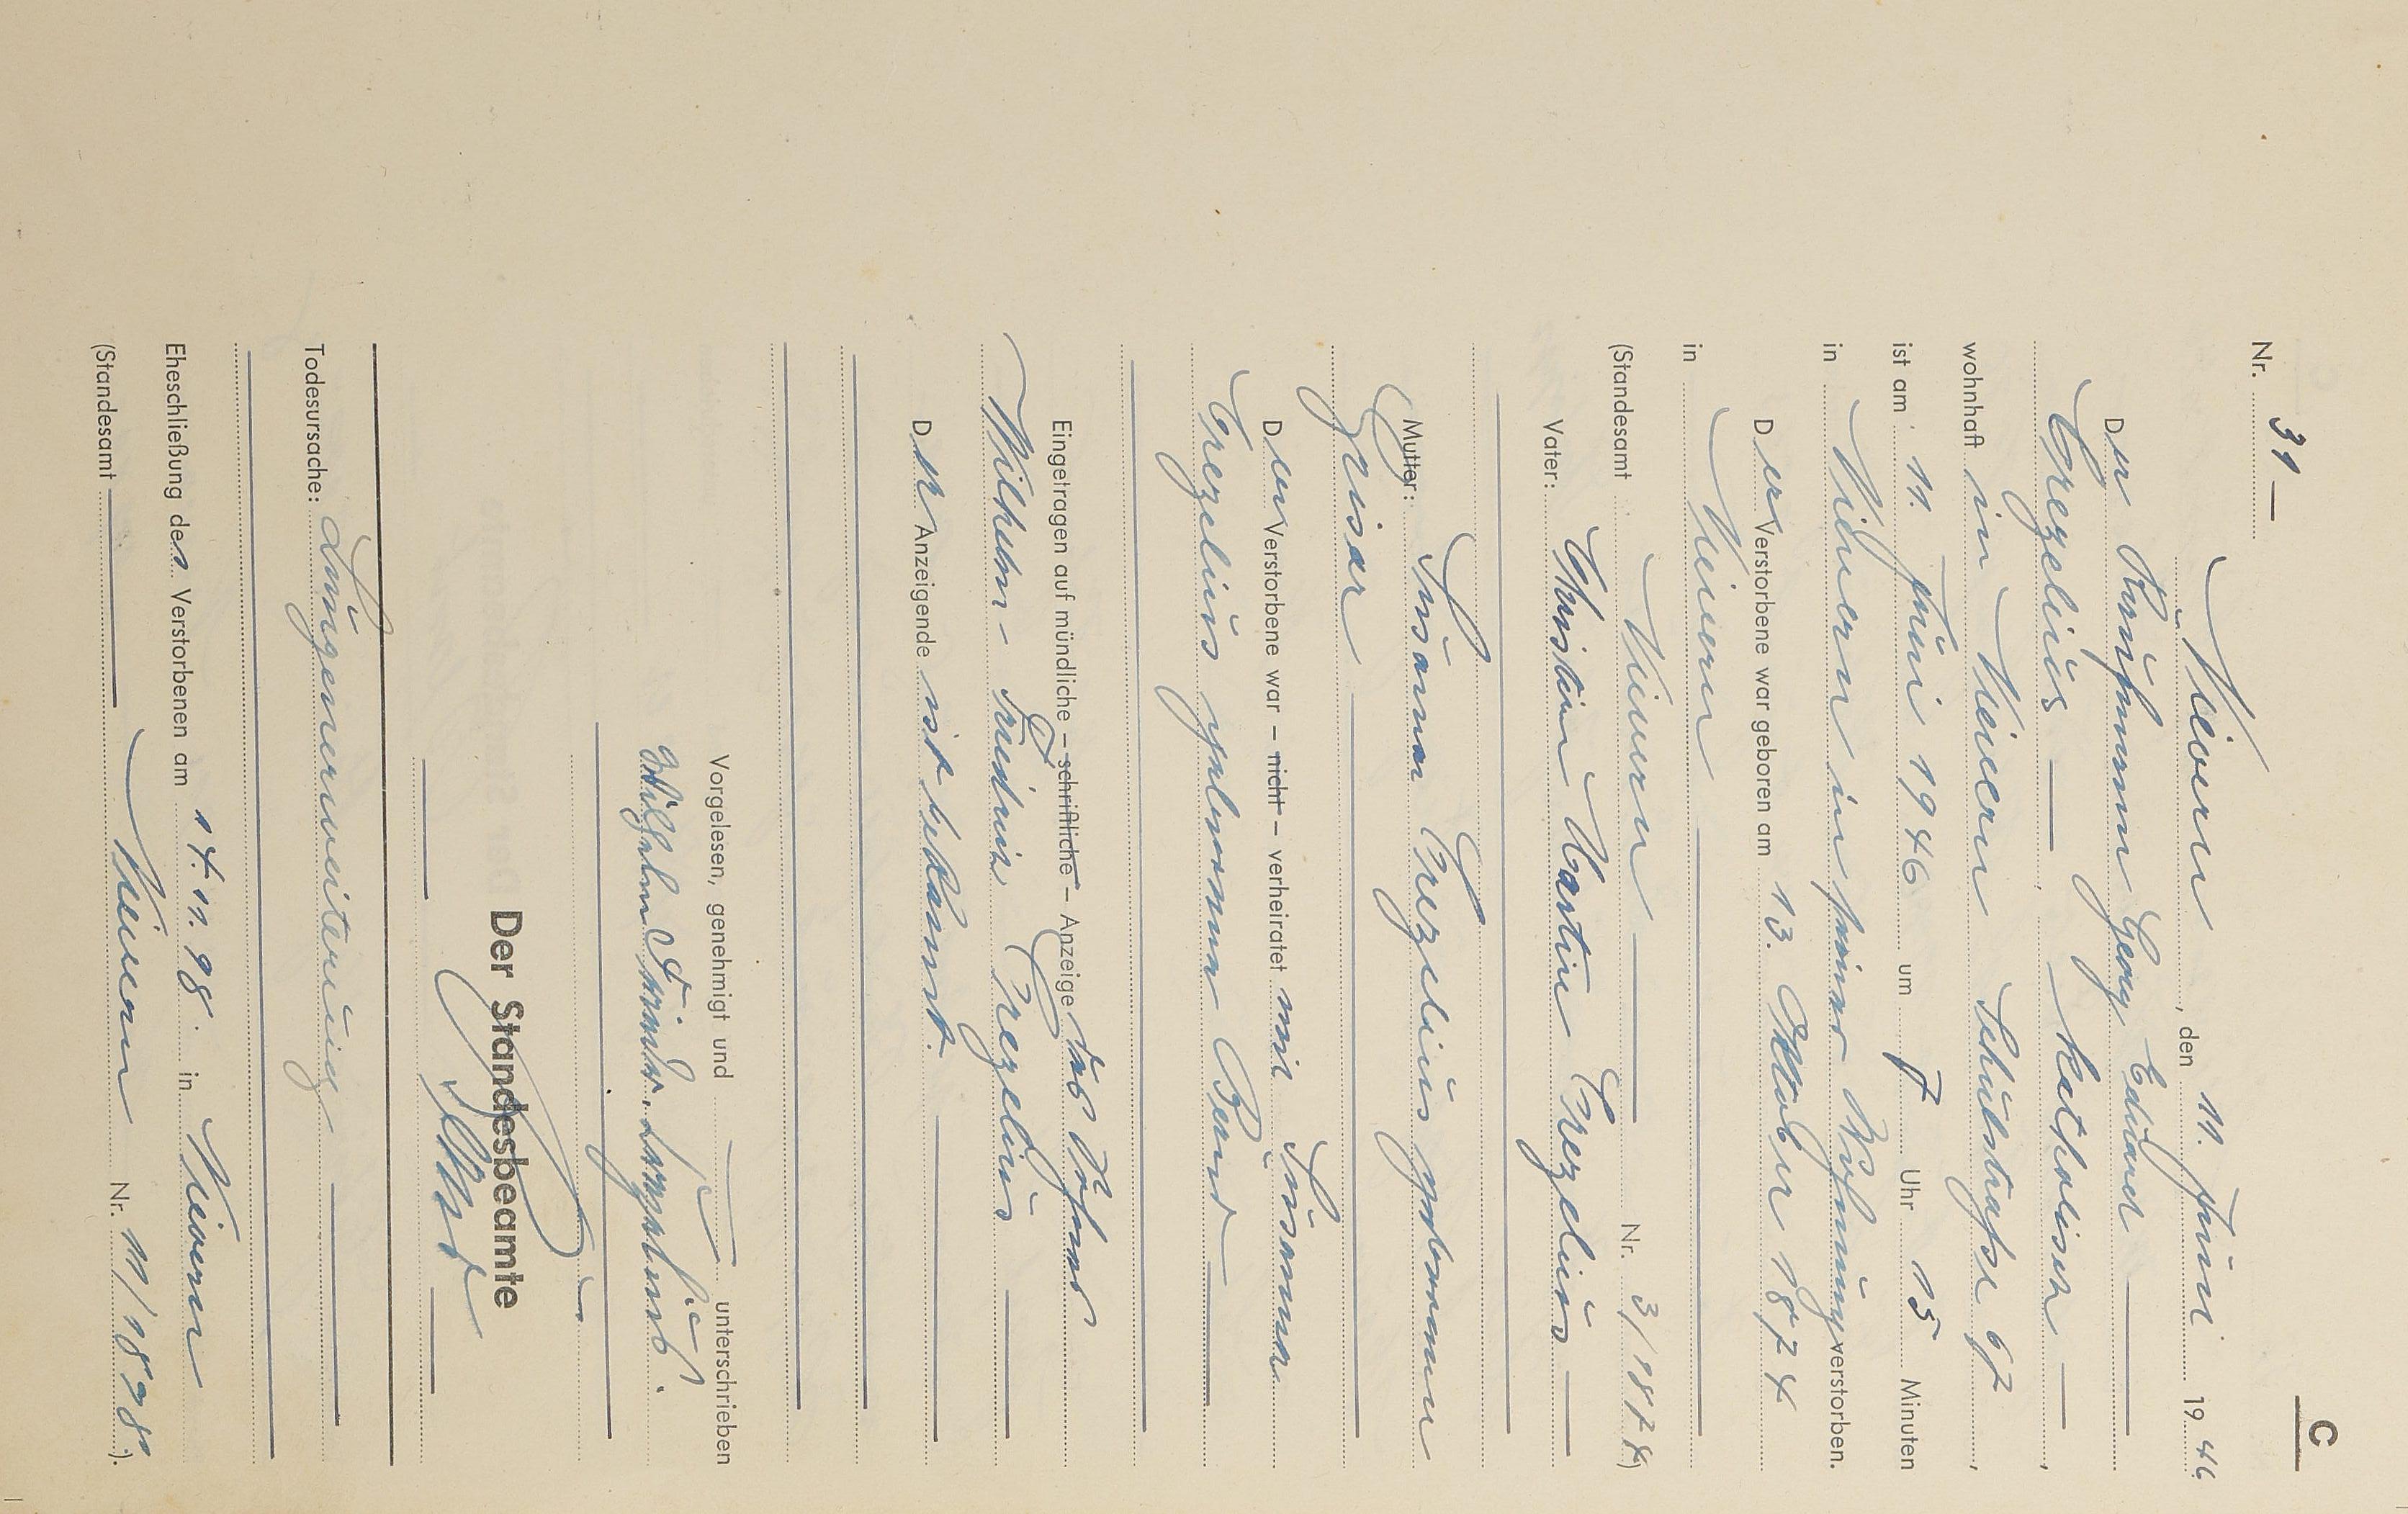 C
Nr. 31 —
Nievern, den 11. Juni 1946
Der Kaufmann Georg Eduard —
Crezelius — katholisch —,
wohnhaft in Nievern Schulstraße 67,
ist am 11. Juni 1946 um 7 Uhr 15 Minuten
in Nievern in seiner Wohnung verstorben.
Der Verstorbene war geboren am 13. Oktober 1874
in Nievern —
(Standesamt Nievern — Nr. 3/1874)
Vater: Christian Martin Crezelius —
Mutter: Susanna Crezelius geborenen
Grisar —
Der Verstorbene war – nicht – verheiratet mit Susanna
Crezelius geborenen Bernd —
Eingetragen auf mündliche – schriftliche – Anzeige des Sohnes
Wilhelm - Crezelius —
Der Anzeigende ist bekannt. —
Vorgelesen, genehmigt und — unterschrieben
Wilhelm Crezelius.
Der Standesbeamte
Todesursache: Lungenerweiterung —
Eheschließung des Verstorbenen am 14.11.98. in Nievern
(Standesamt — Nievern Nr. 11/1898).